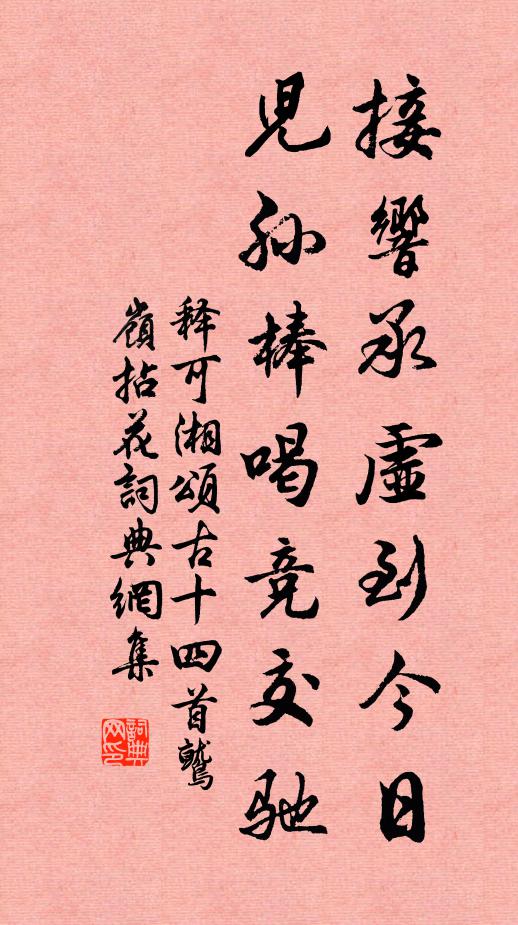 接響承虛到今日
児孙棒喝竞交驰
释可湘頌古十四首鷲
嶺拈花詞典網集
詞典
网印